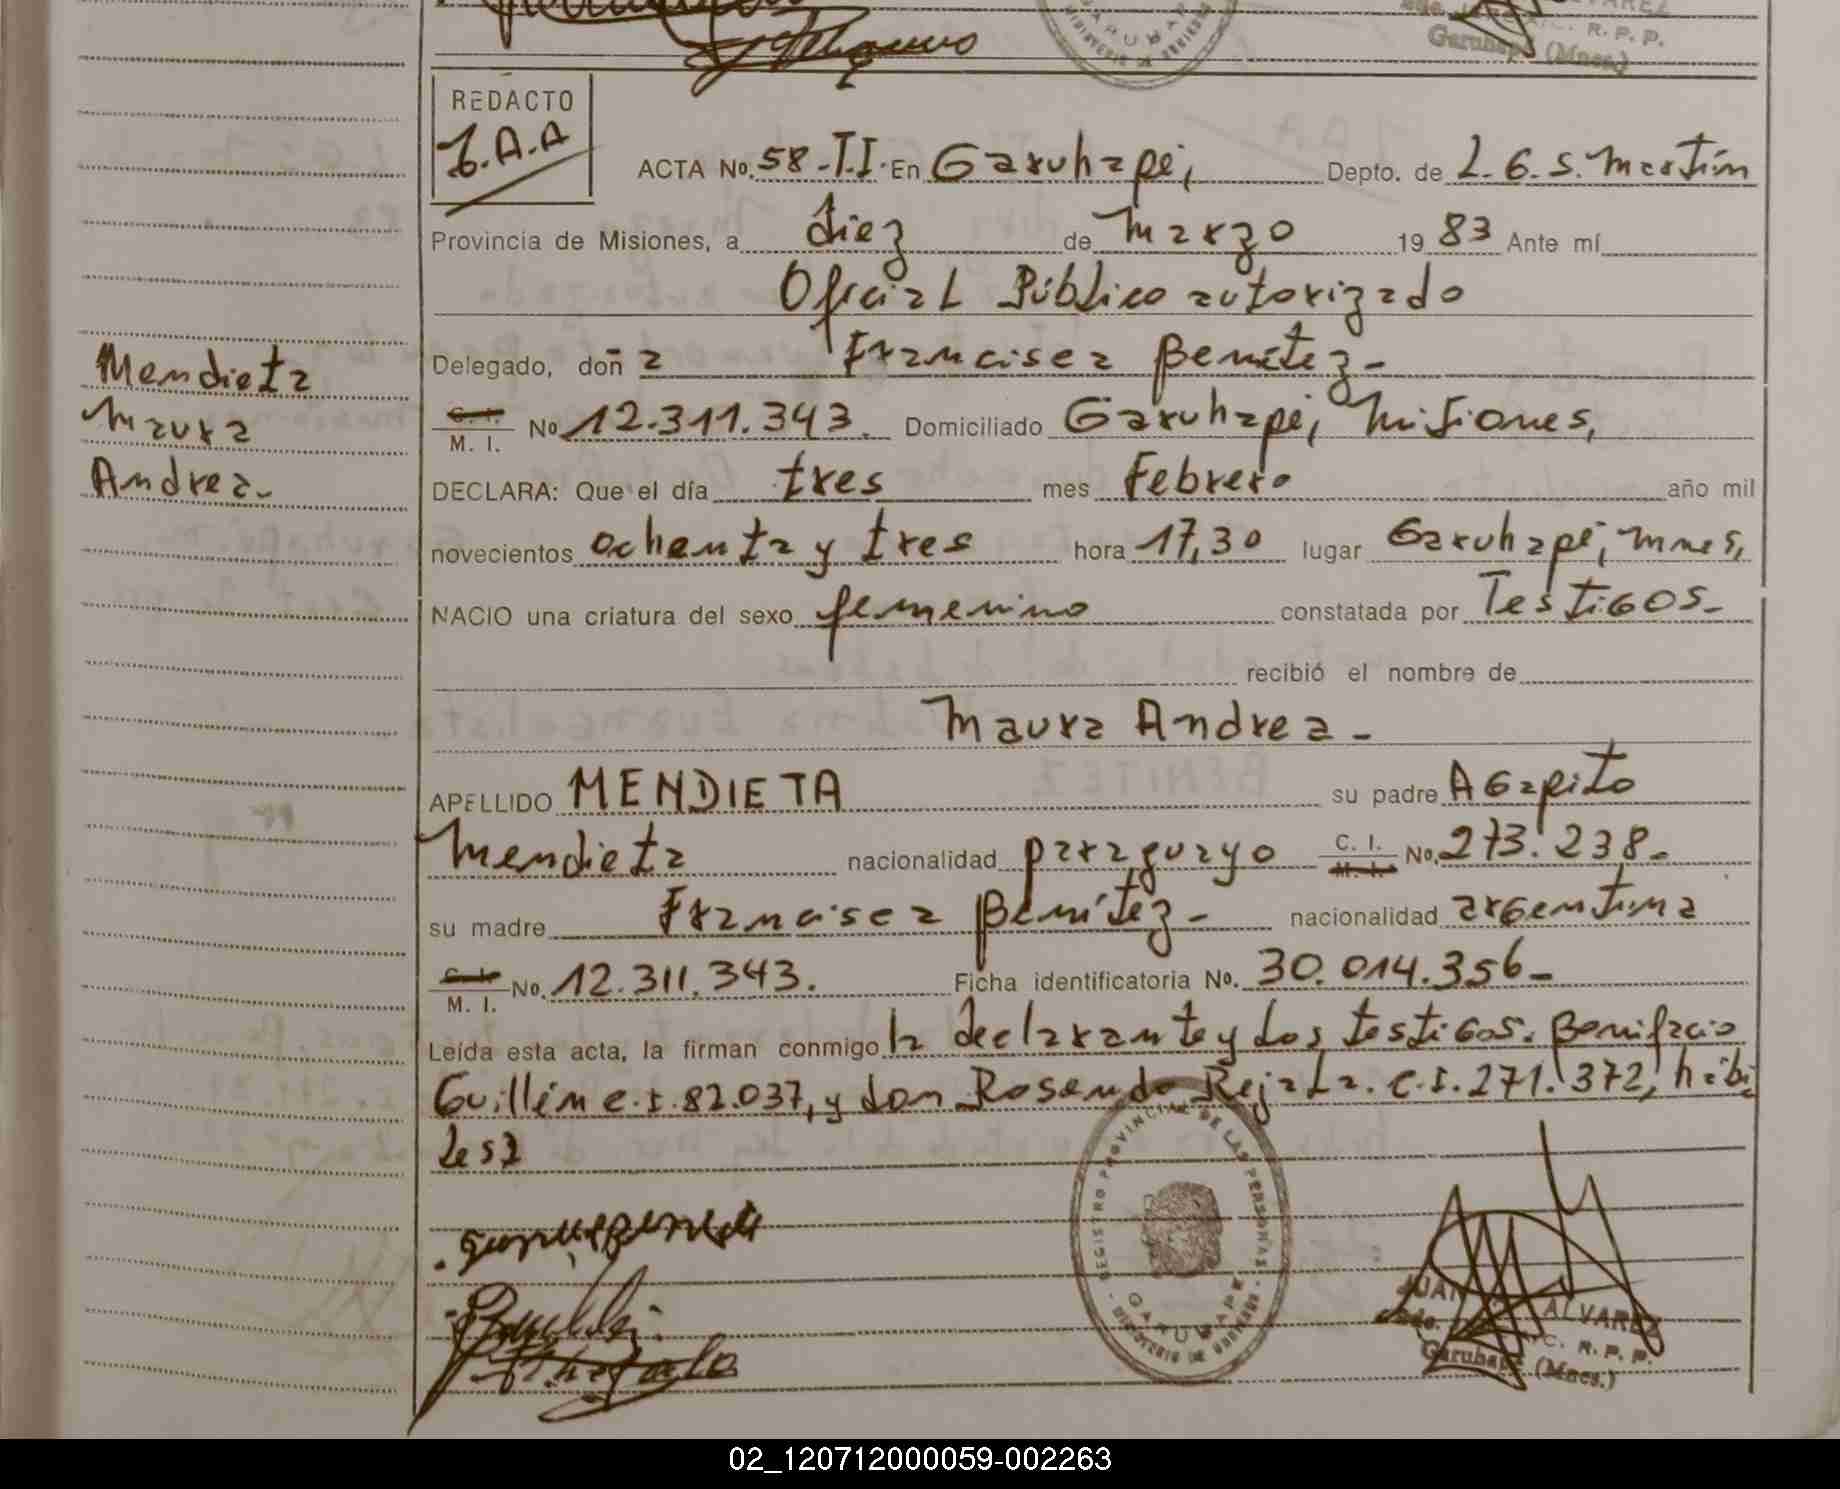 Garuhapé (Mnes.)
R. P. P.
REDACTO
J.A.A
ACTA No. 58-T.I. En Garuhapé, Depto. de L.G.S. Martín
Provincia de Misiones, a diez de Marzo 19 83 Ante mí
Oficial Público autorizado
Delegado, doña Francisca Benítez-
C. I. M. I. No 12.311.343. Domiciliado Garuhapé, Misiones,
DECLARA: Que el día tres mes Febrero año mil
novecientos ochenta y tres hora 17,30 lugar Garuhapé, Mnes,
NACIO una criatura del sexo femenino constatada por Testigos-
recibió el nombre de
Maura Andrea-
APELLIDO MENDIETA su padre Agapito
Mendieta nacionalidad paraguayo C. I. M. I. No. 273.238-
su madre Francisca Benítez- nacionalidad argentina
C. I. M. I. No. 12.311.343. Ficha identificatoria No. 30.014.356-
Leída esta acta, la firman conmigo la declarante y los testigos. Bonifacio
Guillén c.i. 82.037, y don Rosendo Rejala. c.i. 271.372, hábi
les
Mendieta
Maura
Andrea-
REGISTRO PROVINCIAL DE LAS PERSONAS
GARUHAPE
MINISTERIO DE GOBIERNO
JUAN ALVAREZ
R. P. P.
Garuhapé (Mnes.)
02_120712000059-002263